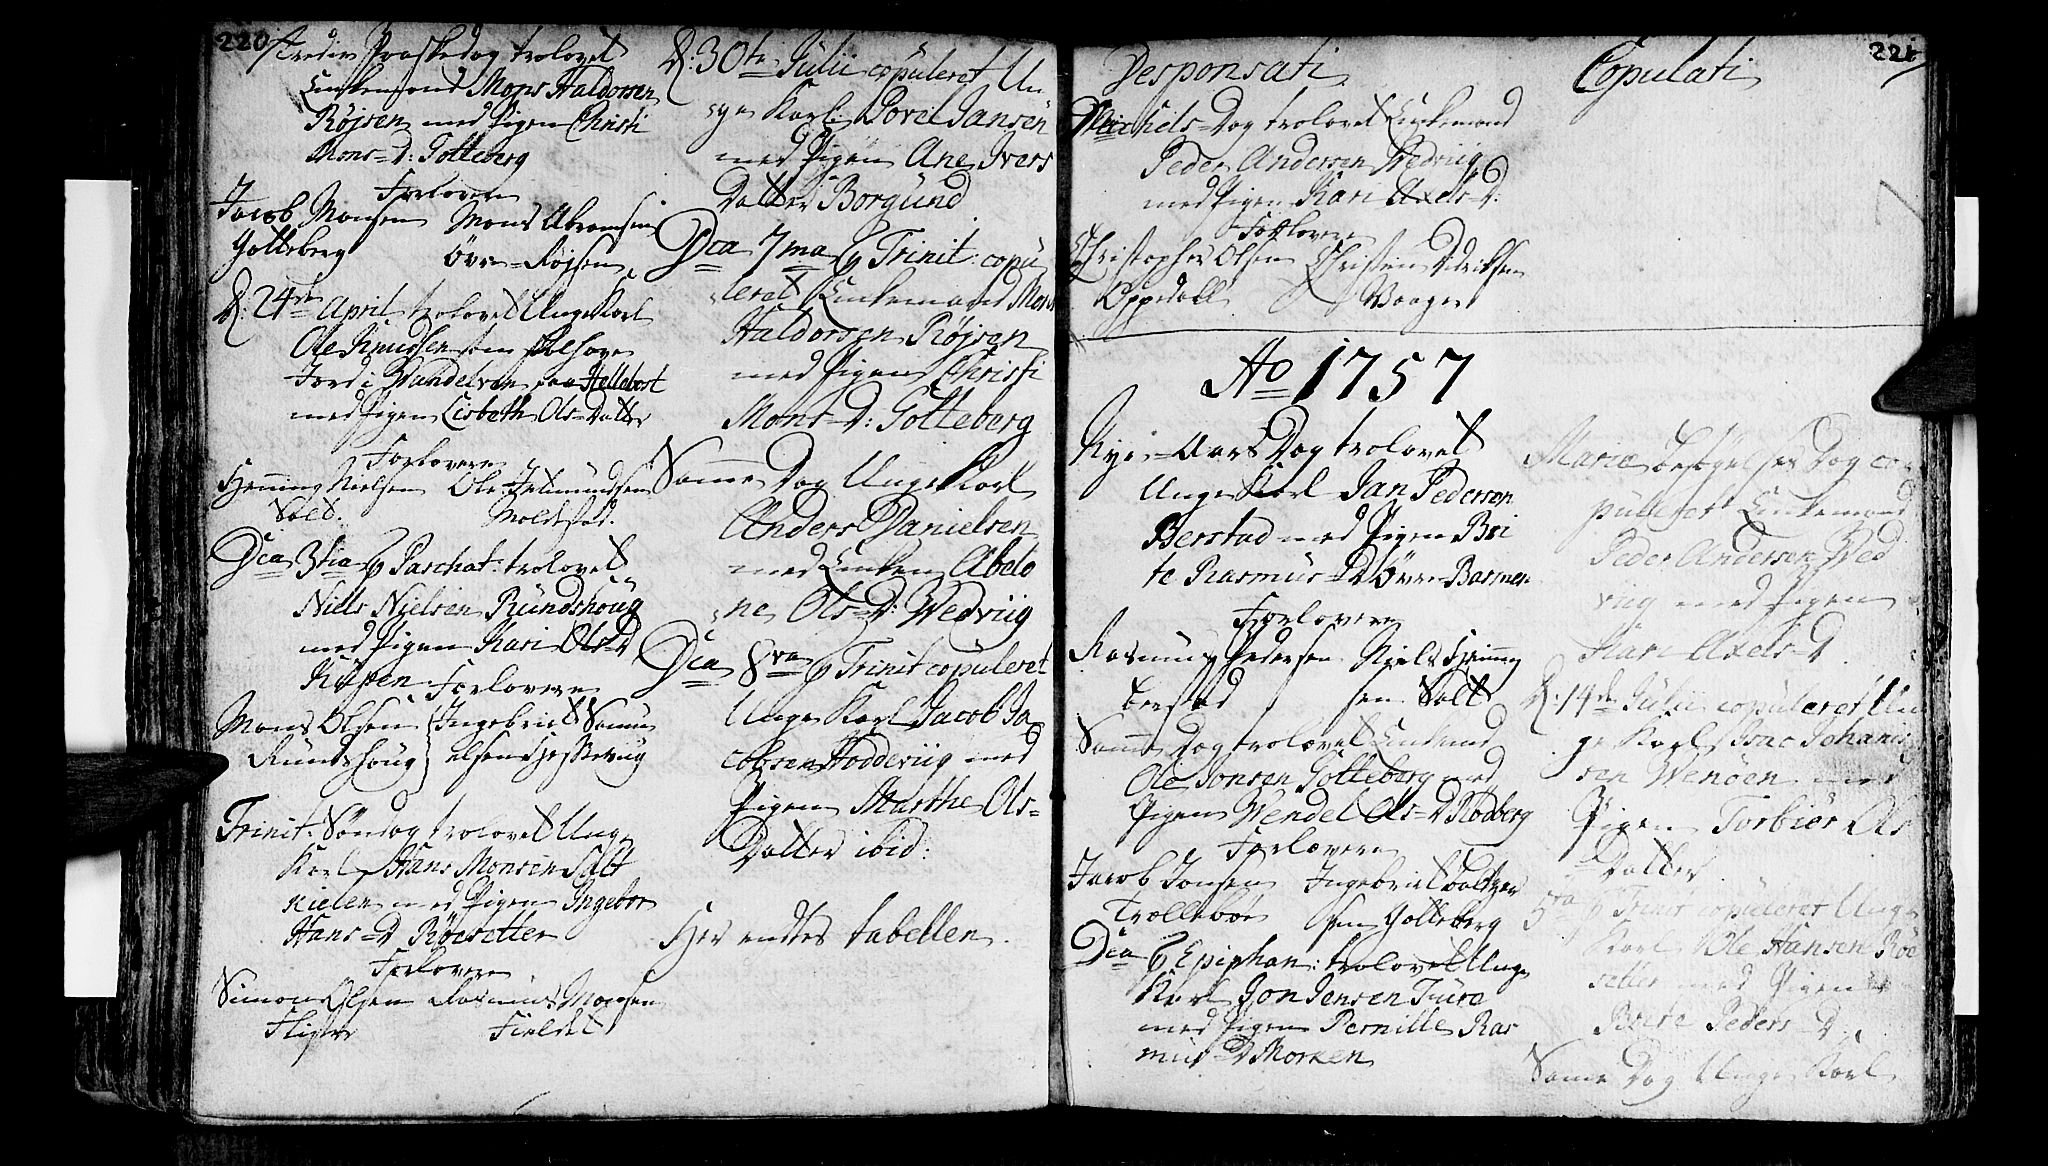 220
Tredie Paaskedag trolovet
Enkemand Mons Haldorsen
Røjsen med Pigen Christi
Mons=D: Gotteberg
Forlovere
Jacob Monsen Mons Abramsen
Gotteberg Øvre=Røjsen
D: 24de April trolovet Unge Karl
Ole Knudsen som
Jord i paa
med Pigen Lisbeth Ols=Datter
Forlovere
Henning Nielsen Ole
Salt.
Dca 3tia p Paschat: trolovet
Niels Nielsen Rundshoug
med Pigen Kari Ols=D
Forlovere
Mons Olsen Ingebrigt Samu
Rundshoug elsen
Trinit: Søndag trolovet Unge
Karl Hans Monsen Salt
kielen med Pigen Ingebor
Hans=D Røesetter
Forlovere
Simon Olsen Rasmus Monsen
D: 30te Julii copuleret Un
ge Karl Povel Jansen
med Pigen Ane Ivers
Datter Borgund
Dca 7ma p Trinit: copu
leret Enkemand Mons
Haldorsen Røjsen
med Pigen Christi
Mons=D: Gotteberg
Samme Dag Unge Karl
Anders Danielsen
med Enken Abelo
ne Ols=D: Wedviig
Dca 8va p Trinit copuleret
Unge Karl Jacob Ja
cobsen Hodderiig med
Pigen Marthe Ols=
Datter ibid:
Her endtes tabellen.
221
Desponsati
Michels=Dag trolovet Enkemand
Peder Andersen Wedviig
med Pigen Kari Axels=D:
Forlovere
Christopher Olsen Christen Didriksen
Oppedall Waagen
Ao 1757
Nye=Aars Dag trolovet
Unge Karl Jan Pedersen
Berstad med Pigen Bri
te Rasmus=D Øvre=Basmen
Forlovere
Rasmus Pedersen Niels Henning
berstad sen Salt
Samme Dag trolovet Enkemand
Ole Jonsen Gotteberg med
Pigen Wendel Ols=D Rødberg
Forlovere
Jacob Jonsen Ingebrigt Baltzer
Trollebøe sen Gotteberg
Dca p Epiphan: trolovet Unge
Karl Jon Jensen Ture
med Pigen Pernille Ras
mus=D Morken
Copulati
Mariæ Besøgelses Dag co
puleret Enkemand
Peder Andersen Wed
viig med Pigen
Kari Axels=D
D: 14de Julii copuleret Un
ge Karl Isac Johanis
sen Wenøen med
Pigen Torbiør Ols
Datter
5ta p Trinit copuleret Unge
Karl Ole Hansen Røe
setter med Pigen
Brite Peders=D
Samme Dag Unge Karl